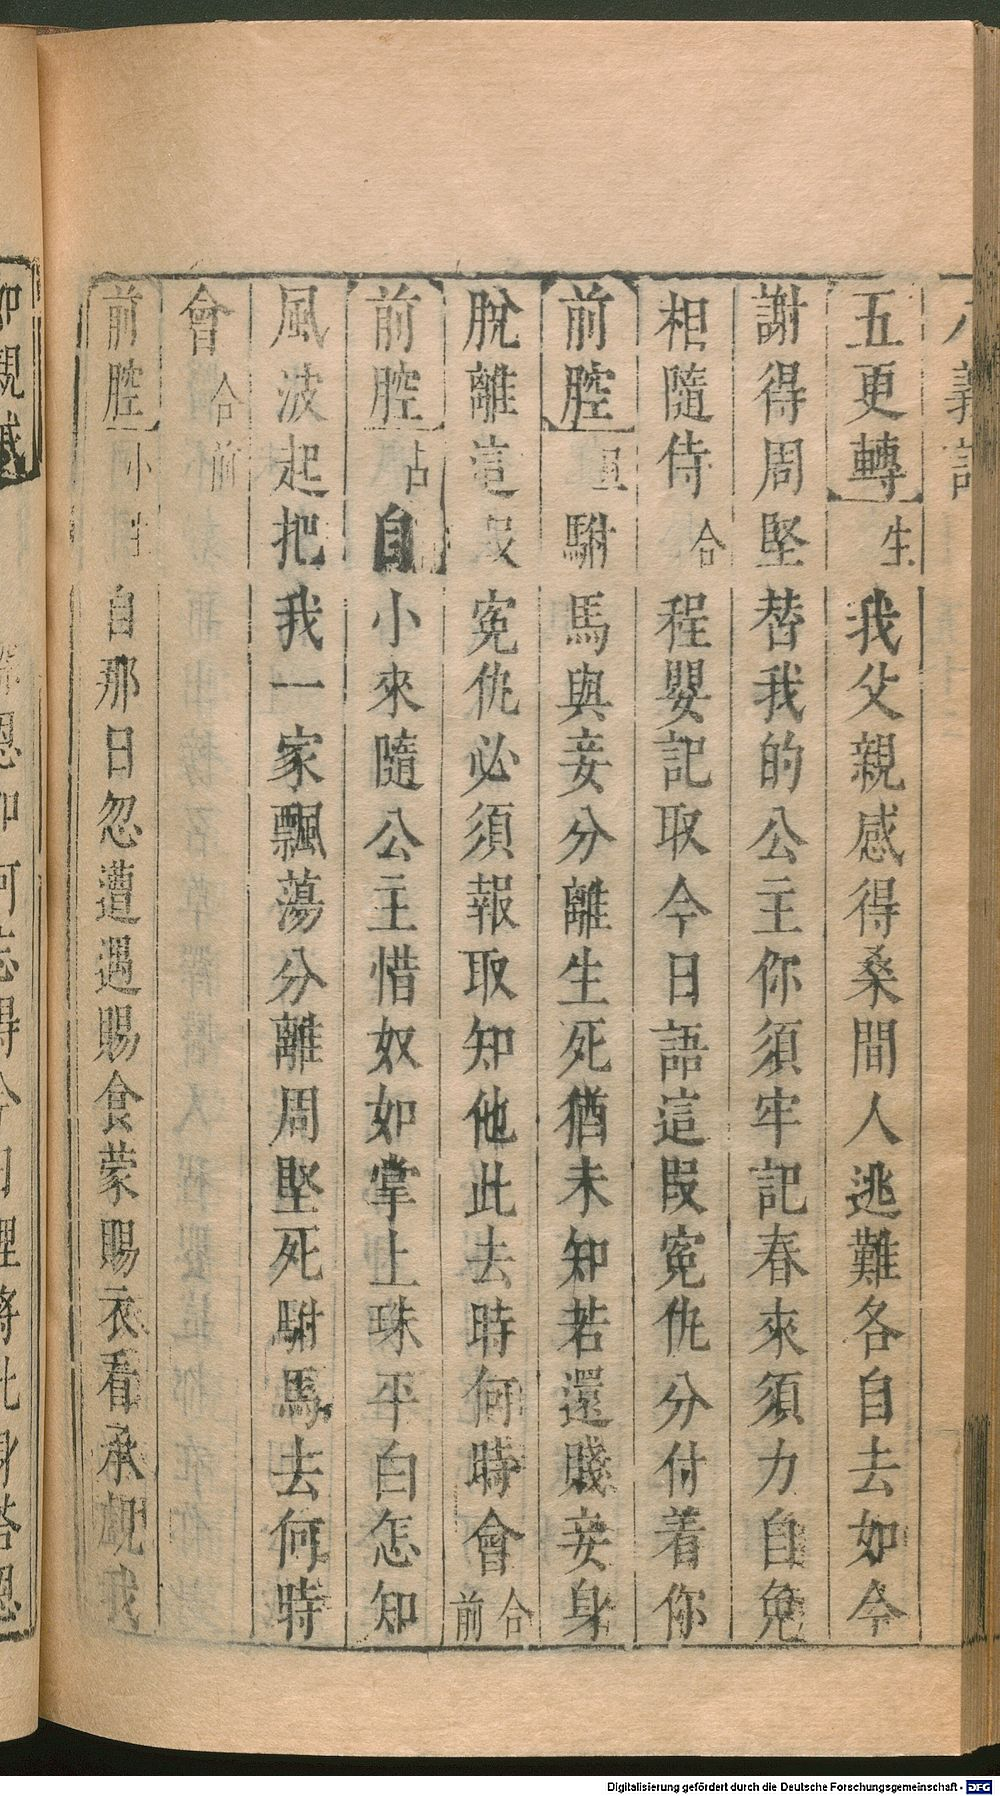 八義記
五更轉 生 我父親感得桑間人逃難各自去如今
謝得周堅替我的公主你須牢記春來須力自免
相隨侍 合 程嬰記取今日語這叚寃仇分付着你
前腔 旦 駙馬與妾分離生死猶未知若還賤妾身
脫離這叚寃仇必須報取知他此去時何時會 合前
前腔 占 自小來隨公主惜奴如掌上珠平白怎知
風波起把我一家飄蕩分離周堅死駙馬去何時
會 合前
前腔 小生 自那日忽遭遇賜食蒙賜衣看承覷我
Digitalisierung gefördert durch die Deutsche Forschungsgemeinschaft - DFG